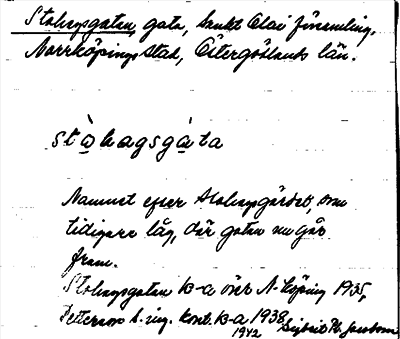 Stohagsgatan, gata, Sankt Olai församling,
Norrköpings stad, Östergötlands län.
stòhagsgàta
Namnet efter Stohagsgärdet, som
tidigare låg, där gatan nu går
fram.
Stohagsgatan k-a över N-köping 1935,
Pettersson k. ing. kont. k-a 1938,
1942